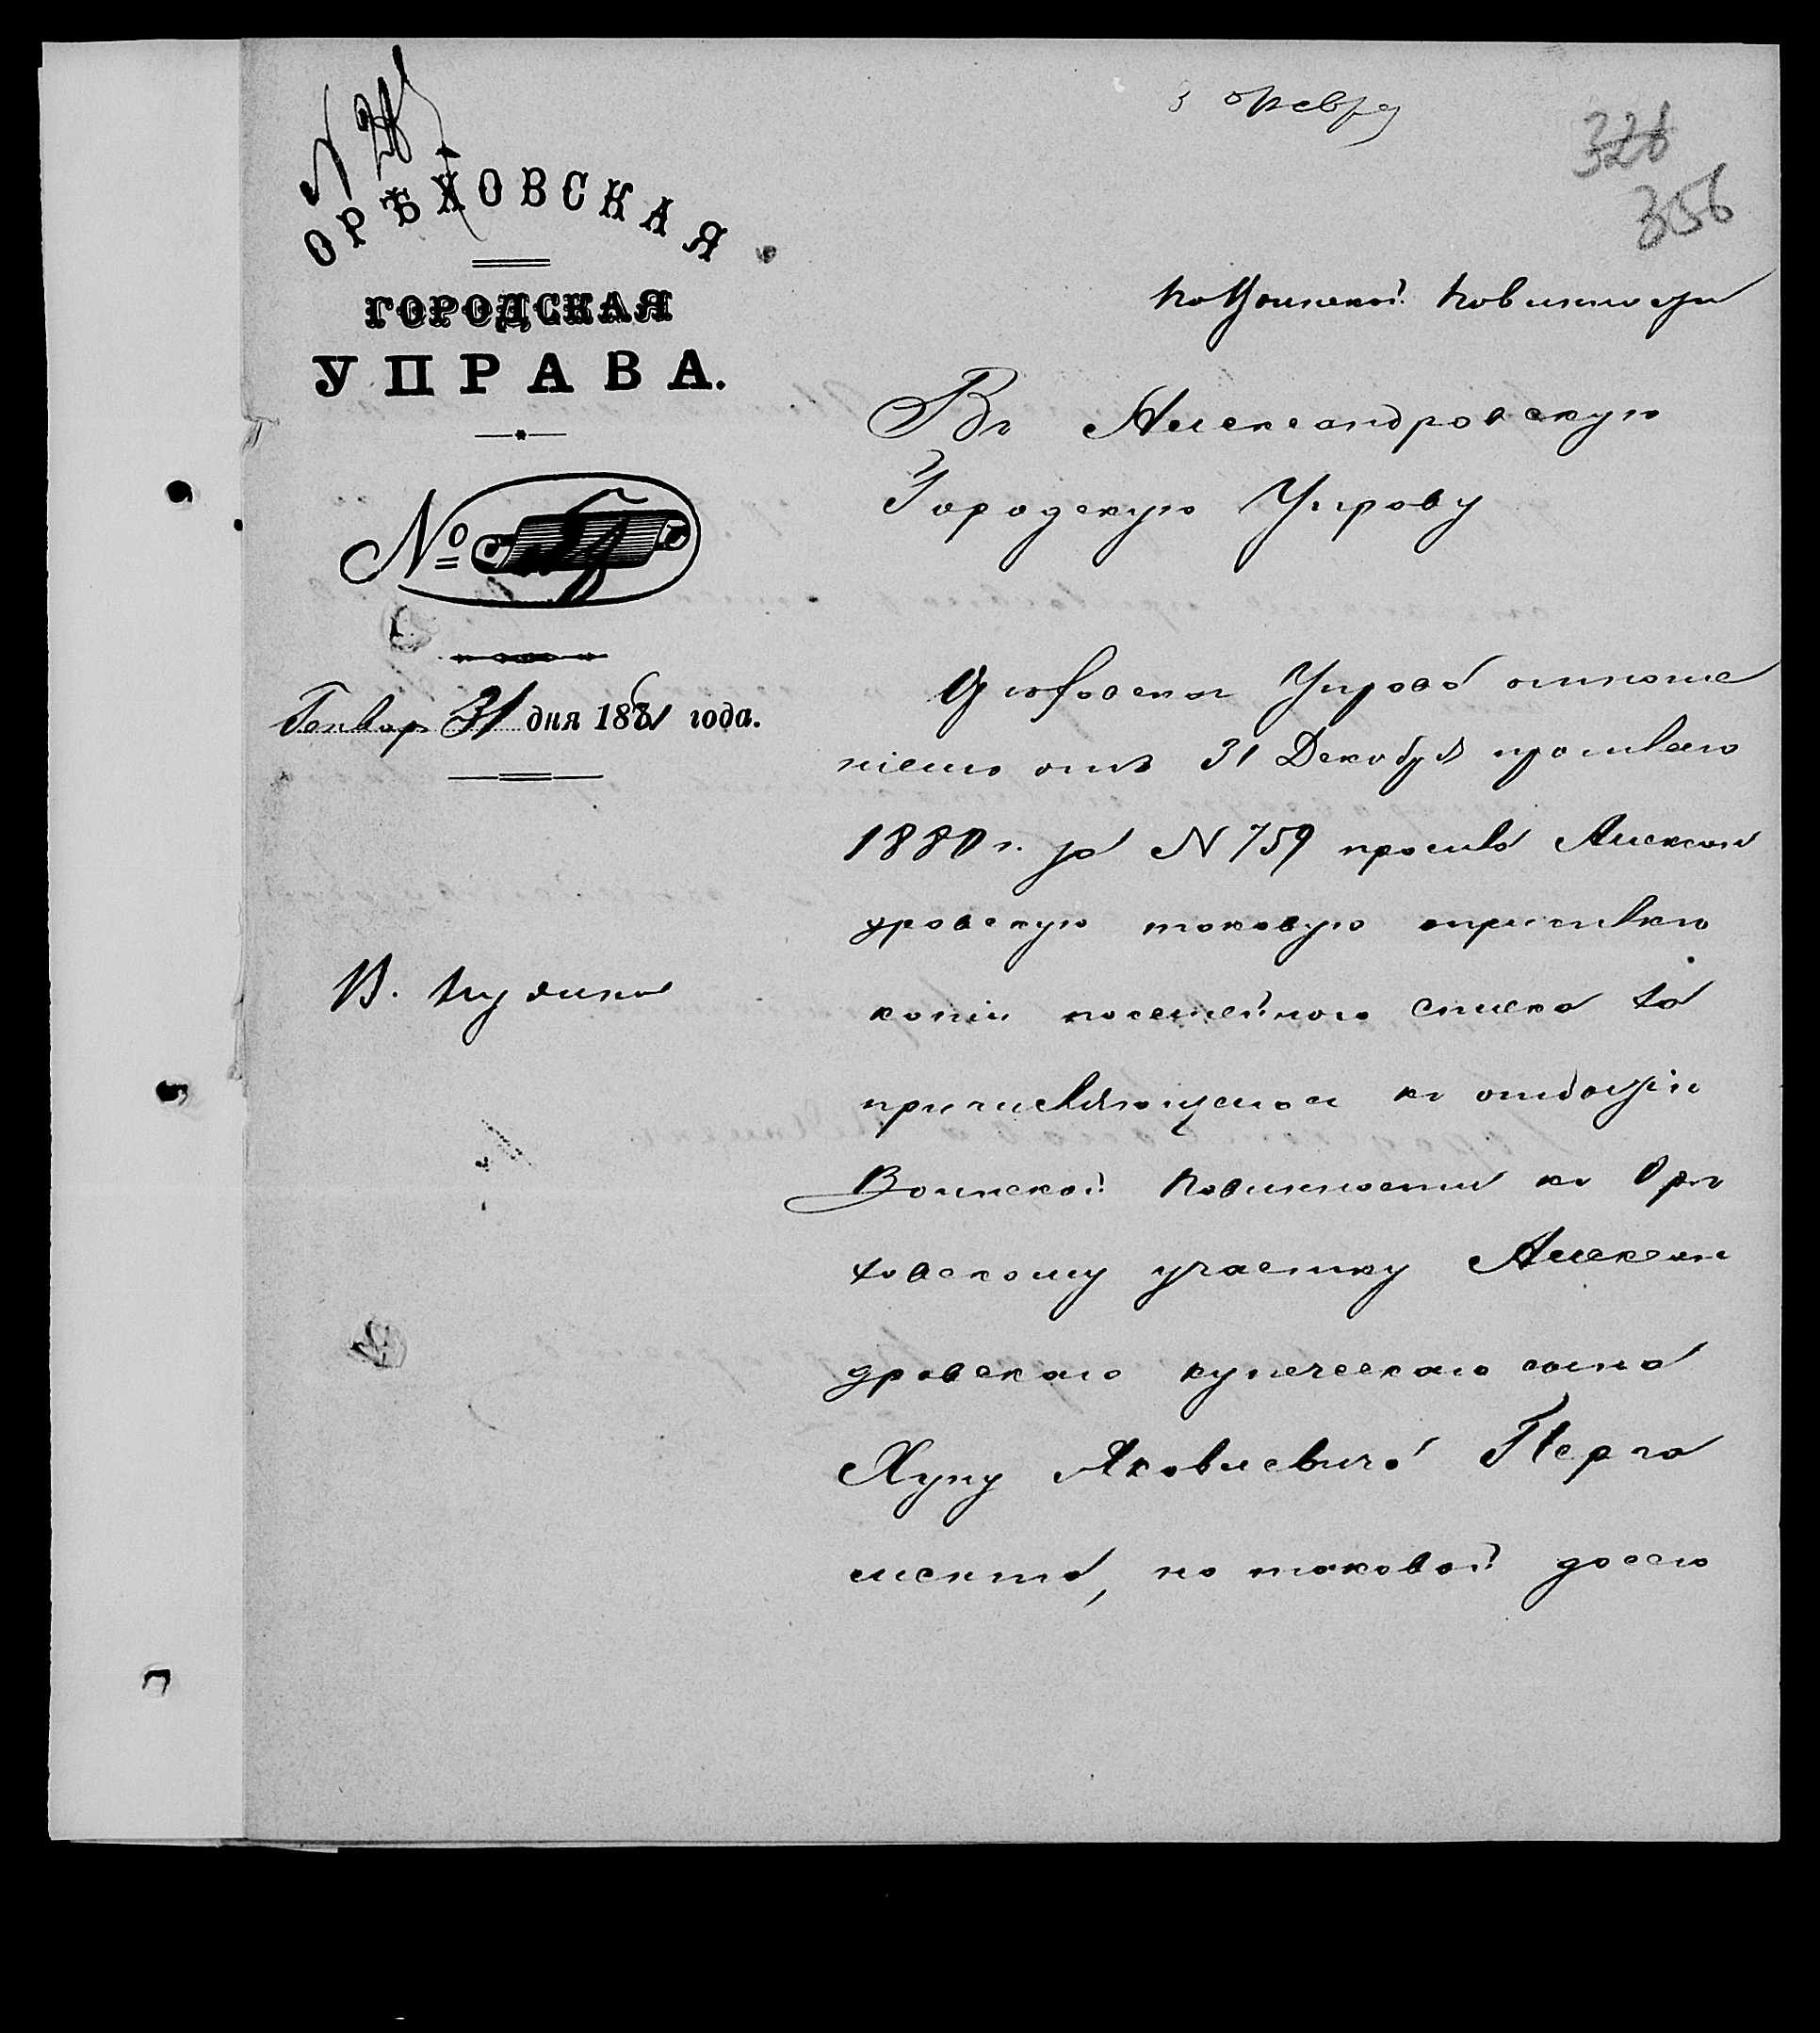 3 февра
328
356
ОРѢХОВСКАЯ
ГОРОДСКАЯ
УПРАВА.
№
Генвар 31 дня 1881 года.
по Воинской повинности
Въ Александровскую
Городскую Управу
Орѣховская Управа отноше
ніемъ отъ 31 Декабря прошлаго
1880 г. за N 759 просила Алексан
дровскую таковую о присылкѣ
копіи посемейного списка на
причисляющагося къ отбытію
Воинской повинности къ Орѣ
ховскому участку Алексан
дровскаго купеческаго сына
Хуну Яковлевича Перга
мента, но таковой досего